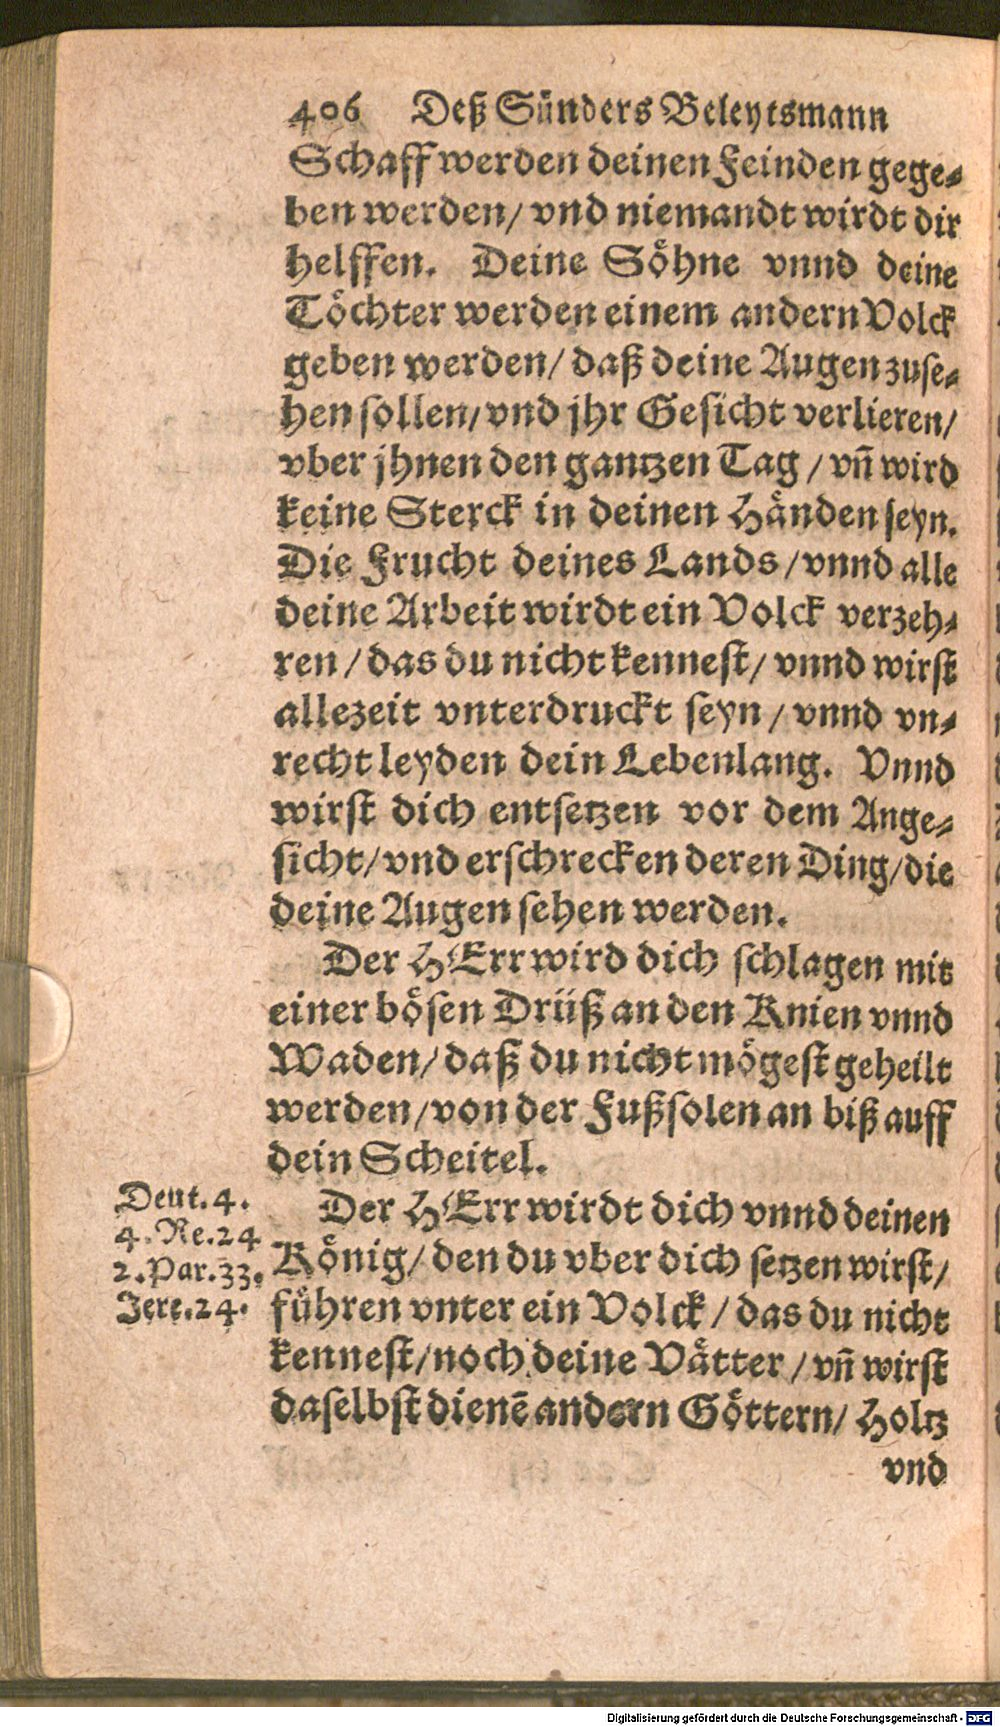 406 Deß Sünders Beleytsmann
Schaff werden deinen Feinden gege⸗
ben werden/ vnd niemandt wirdt dir
helffen. Deine Söhne vnnd deine
Töchter werden einem andern Volck
geben werden/ daß deine Augen zuse⸗
hen sollen/ vnd jhr Gesicht verlieren/
vber jhnen den gantzen Tag / vñ wird
keine Sterck in deinen Händen seyn.
Die Frucht deines Lands / vnnd alle
deine Arbeit wirdt ein Volck verzeh⸗
ren / das du nicht kennest/ vnnd wirst
allezeit vnterdruckt seyn / vnnd vn⸗
recht leyden dein Lebenlang. Vnnd
wirst dich entsetzen vor dem Ange⸗
sicht/ vnd erschrecken deren Ding/ die
deine Augen sehen werden.
Der HErr wird dich schlagen mit
einer bösen Drüß an den Knien vnnd
Waden/ daß du nicht mögest geheilt
werden/ von der Fußsolen an biß auff
dein Scheitel.
Deut. 4.
4. Re. 24
2. Par. 33.
Jere. 24.
Der HErr wirdt dich vnnd deinen
König/ den du vber dich setzen wirst/
führen vnter ein Volck / das du nicht
kennest/ noch deine Vätter / vñ wirst
daselbst dienē andern Göttern/ Holtz
vnd
Digitalisierung gefördert durch die Deutsche Forschungsgemeinschaft - DFG